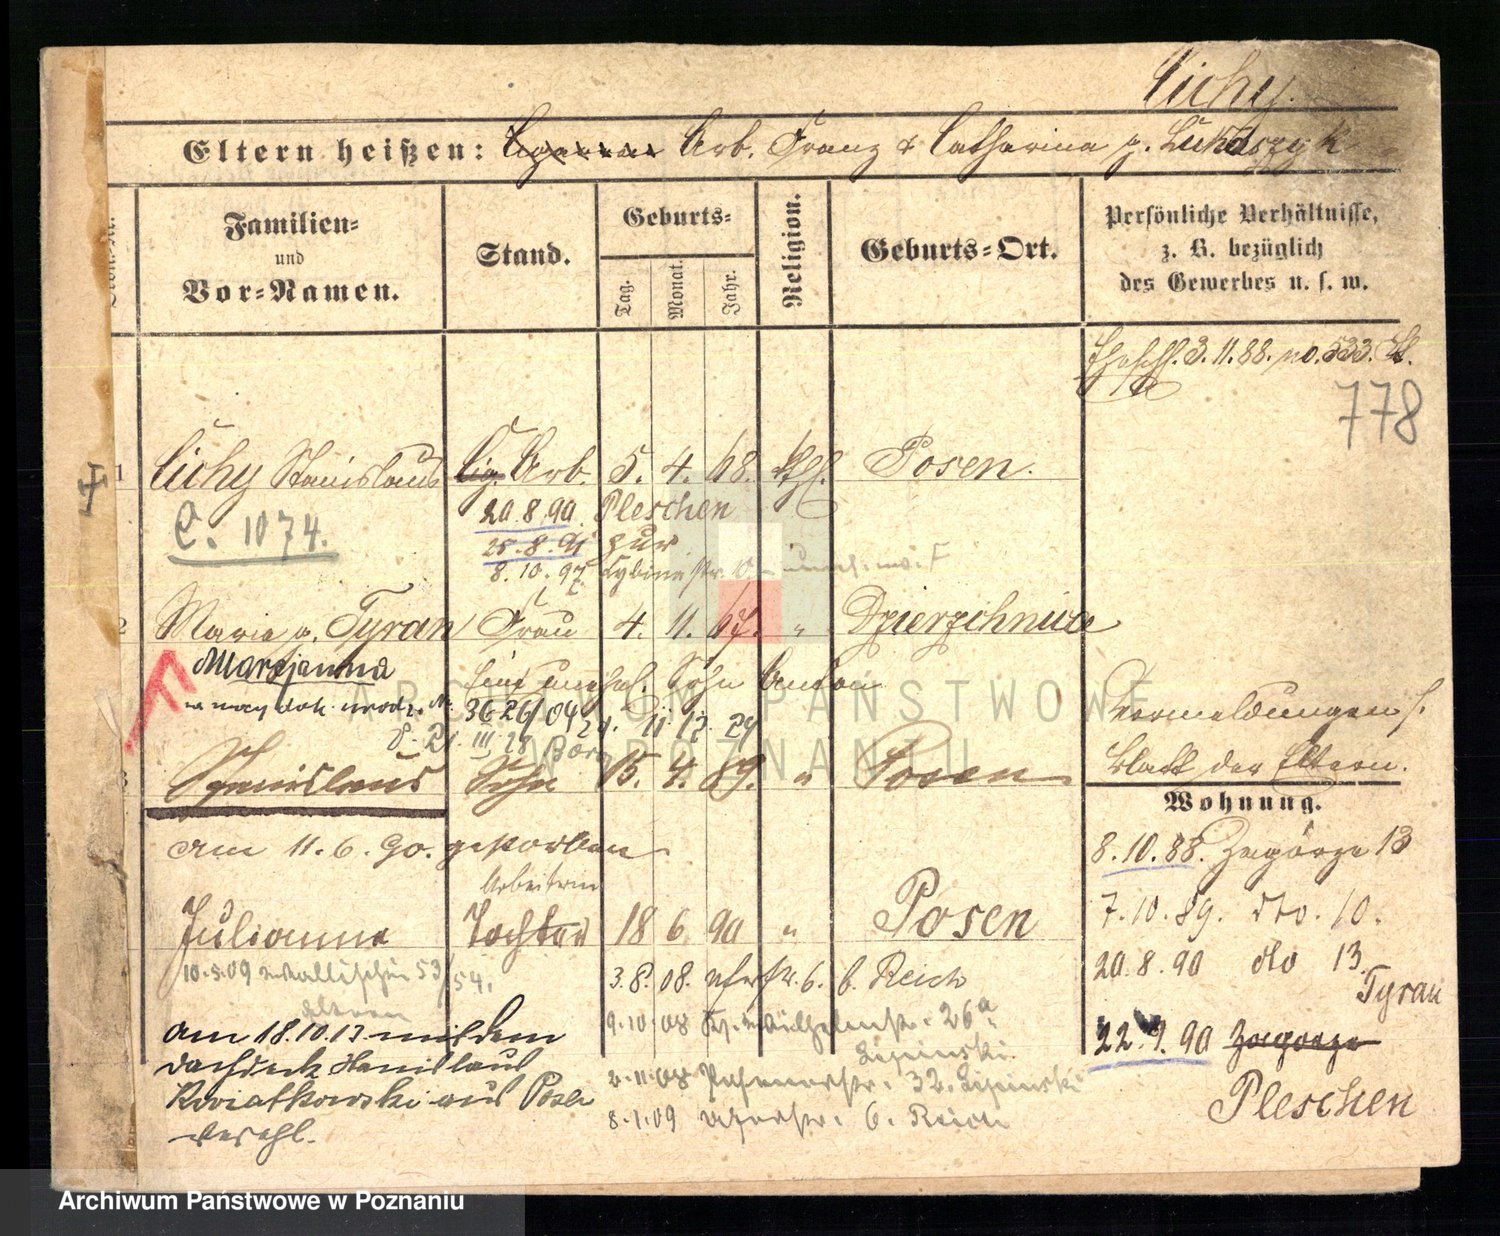 Cichy.
Eltern heißen: Arb. Franz & Catharina g.
Familien- und Vor-Namen.
Stand.
Geburts-
Tag.
Monat.
Jahr.
Religion.
Geburts-Ort.
Persönliche Verhältnisse,
z. B. bezüglich
des Gewerbes u. s. w.
Eheschl. 3.11.88. no. 533.
778
1 Cichy Stanislaus Arb. 5. 4. 68. kth. Posen.
C. 1074.
20.8.90. Pleschen
25.8.91 zur
8.10.97
2 Marie g. Tyran Frau 4. 11. 67. " Dzierzchnica
Maryanna
Sohn Anton
3626/04
ARCHIWUM PAŃSTWOWE
W POZNANIU
Vermeldungen s.
Blatt der Eltern.
3 Stanislaus Sohn 15. 4. 89. " Posen
am 11.6.90. gestorben
Wohnung.
8.10.88. Zagórze 13
7.10.89. dto. 10.
20.8.90 dto 13.
Tyran
22.9.90 Zagorze
Pleschen
Arbeiterin
Julianna Tochter 18 6 90 " Posen
10.5.09 Wallischei 53/54.
Eltern
3.8.08. 6. b. Reich
9.10.08 26a
Lipinski
32. Lipinski
8.1.09 6. Reich
am 18.10.13 mit dem
Dachdeck Stanislaus
Kwiatkowski aus Posen
verehl.
Archiwum Państwowe w Poznaniu